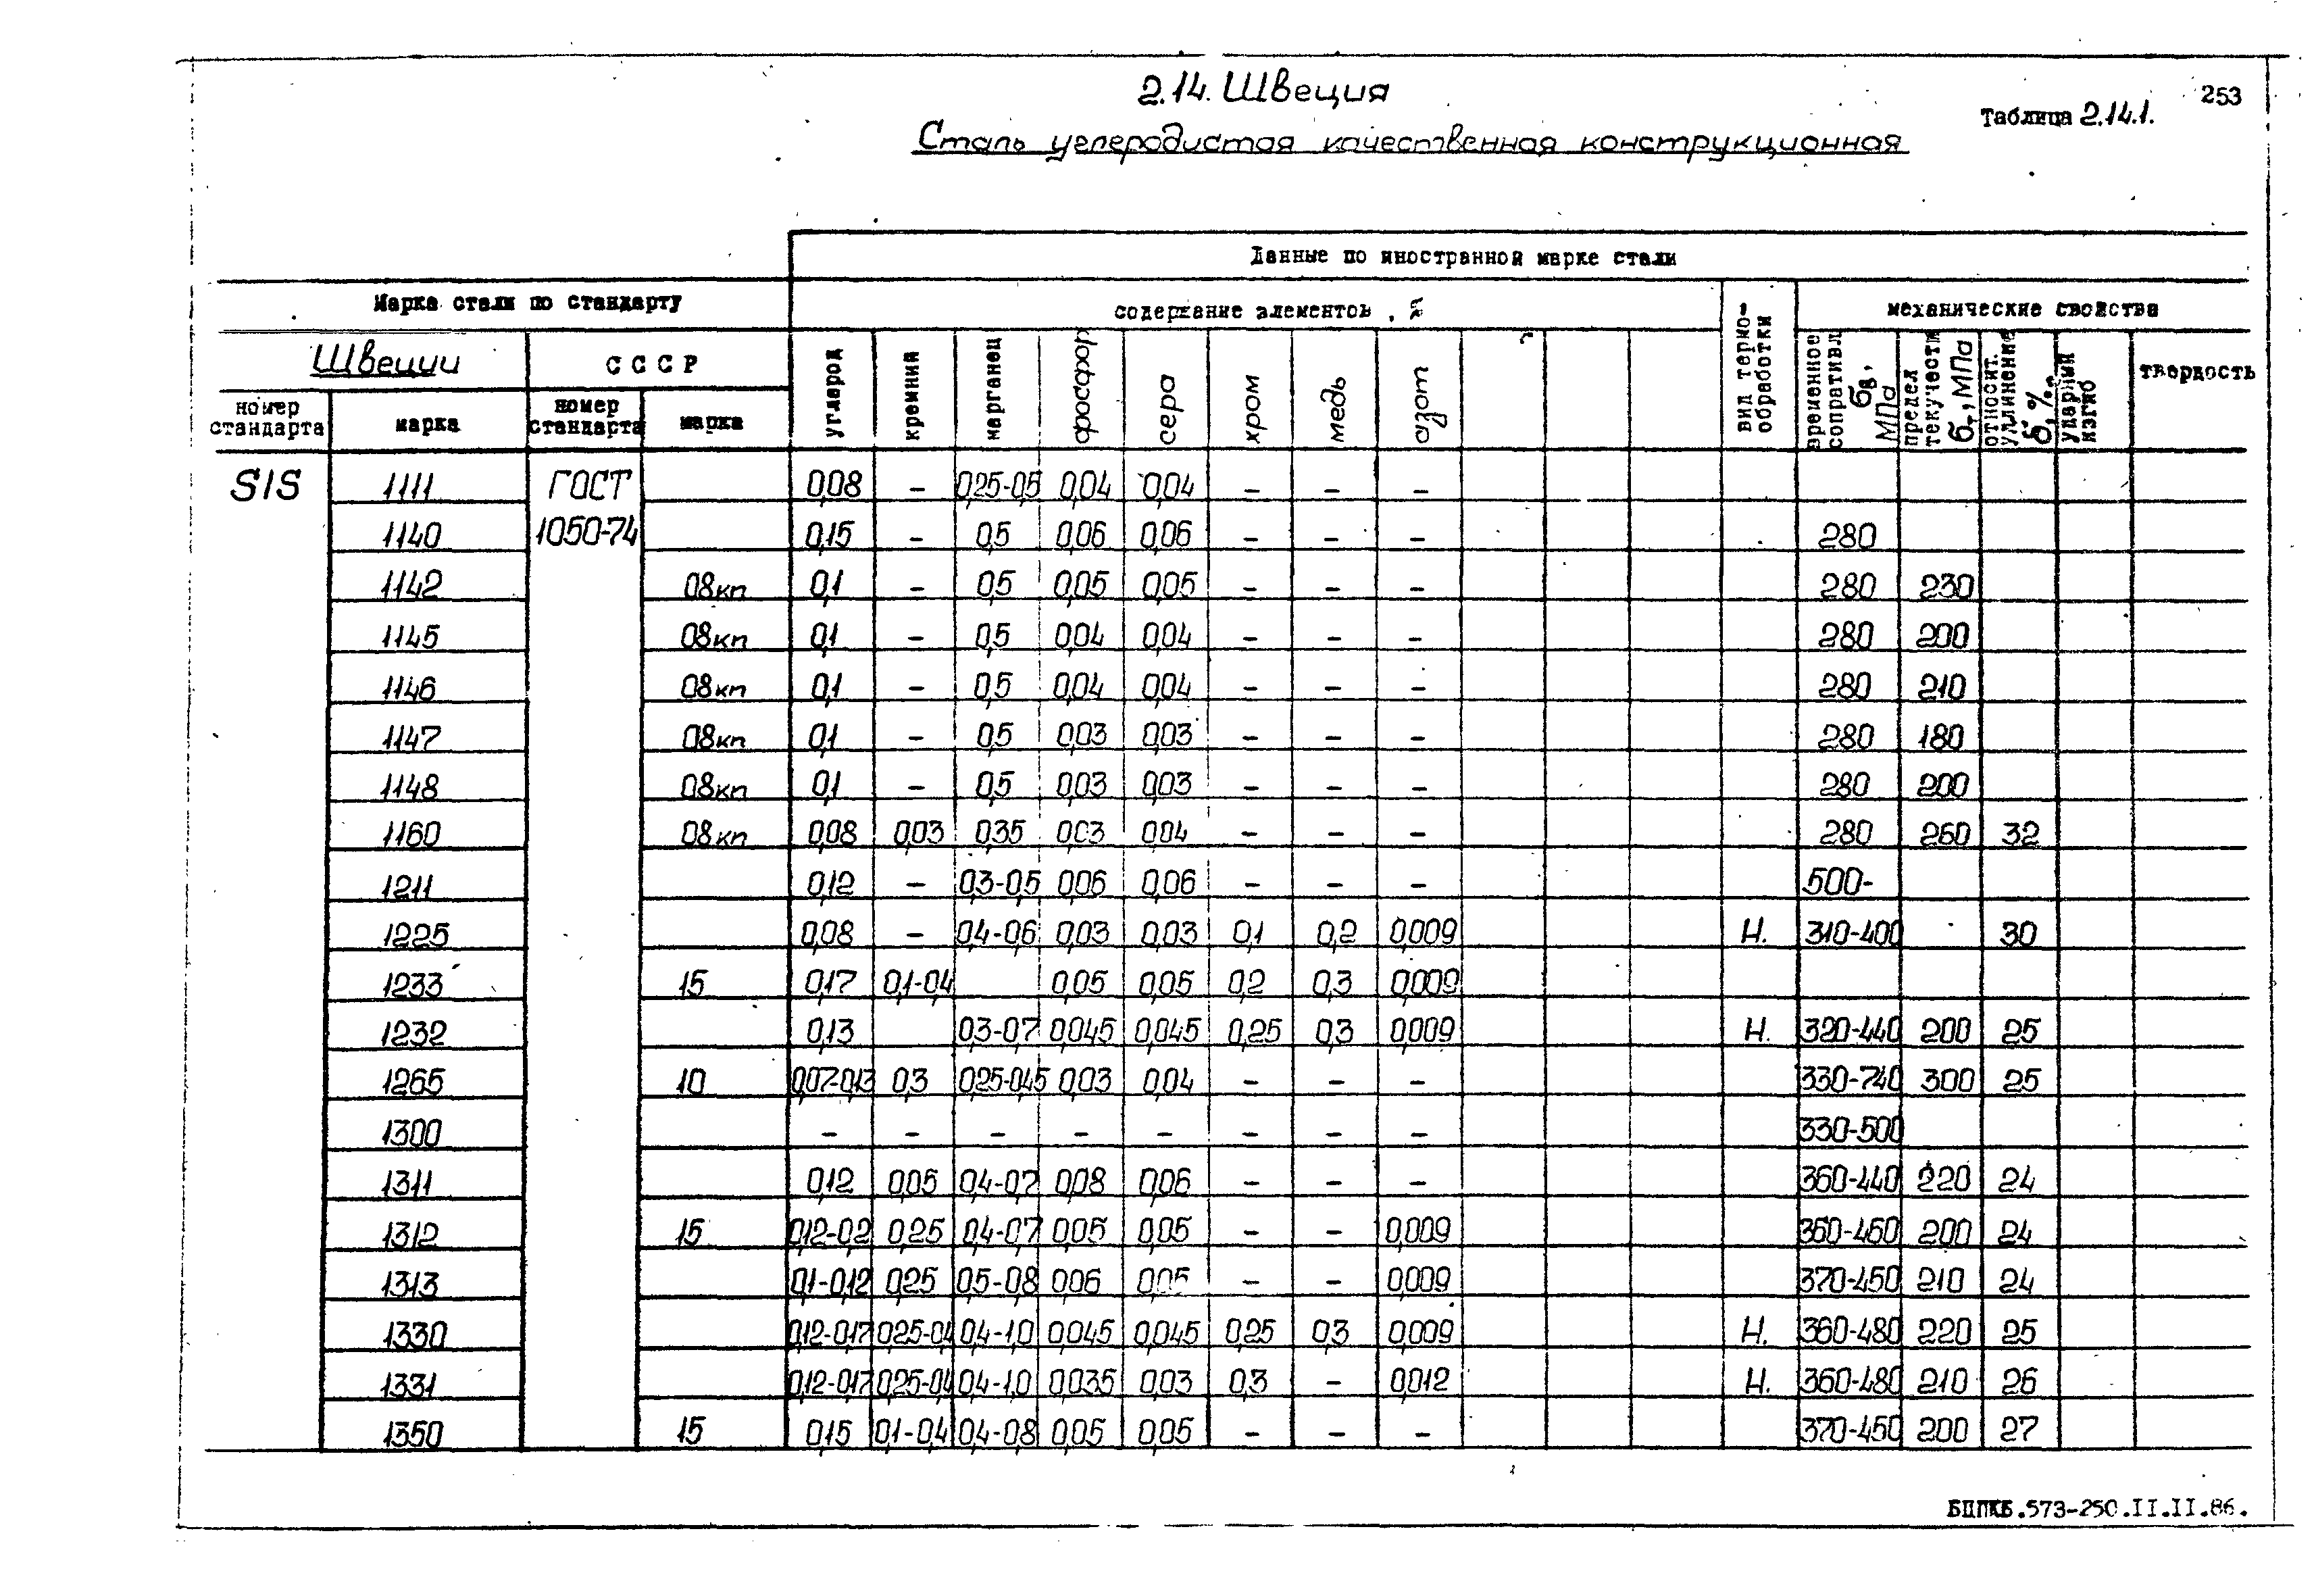 253
2.14. Швеция
Таблица 2.14.1.
Сталь углеродистая качественная конструкционная
Данные по иностранной марке стали
Марка стали по стандарту
содержание элементов, %
вид термообработки
механические свойства
Швеции
СССР
углерод
кремний
марганец
фосфор
сера
хром
медь
азот
временное сопративл. бв, МПа
предел текучести бт, МПа
относит. удлинение б, %
ударный изгиб
твердость
номер стандарта
марка
номер стандарта
марка
SIS 1111 ГОСТ 0,08 – 0,25-0,5 0,04 0,04 – – –
1140 1050-74 0,15 – 0,5 0,06 0,06 – – – 280
1142 08кп 0,1 – 0,5 0,05 0,05 – – – 280 230
1145 08кп 0,1 – 0,5 0,04 0,04 – – – 280 200
1146 08кп 0,1 – 0,5 0,04 0,04 – – – 280 210
1147 08кп 0,1 – 0,5 0,03 0,03 – – – 280 180
1148 08кп 0,1 – 0,5 0,03 0,03 – – – 280 200
1160 08кп 0,08 0,03 0,35 0,03 0,04 – – – 280 260 32
1211 0,12 – 0,3-0,5 0,06 0,06 – – – 500-
1225 0,08 – 0,4-0,6 0,03 0,03 0,1 0,2 0,009 Н. 310-400 30
1233 15 0,17 0,1-0,4 0,05 0,05 0,2 0,3 0,009
1232 0,13 0,3-0,7 0,045 0,045 0,25 0,3 0,009 Н. 320-440 200 25
1265 10 0,07-0,13 0,3 0,25-0,45 0,03 0,04 – – – 330-740 300 25
1300 – – – – – – – – 330-500
1311 0,12 0,05 0,4-0,7 0,08 0,06 – – – 360-440 220 24
1312 15 0,12-0,2 0,25 0,4-0,7 0,05 0,05 – – 0,009 360-460 200 24
1313 0,1-0,12 0,25 0,5-0,8 0,06 0,05 – – 0,009 370-450 210 24
1330 0,12-0,17 0,25-0,4 0,4-1,0 0,045 0,045 0,25 0,3 0,009 Н. 360-480 220 25
1331 0,12-0,17 0,25-0,4 0,4-1,0 0,035 0,03 0,3 – 0,012 Н. 360-480 210 26
1350 15 0,15 0,1-0,4 0,4-0,8 0,05 0,05 – – – 370-450 200 27
БЦПКБ.573-250.II.II.86.